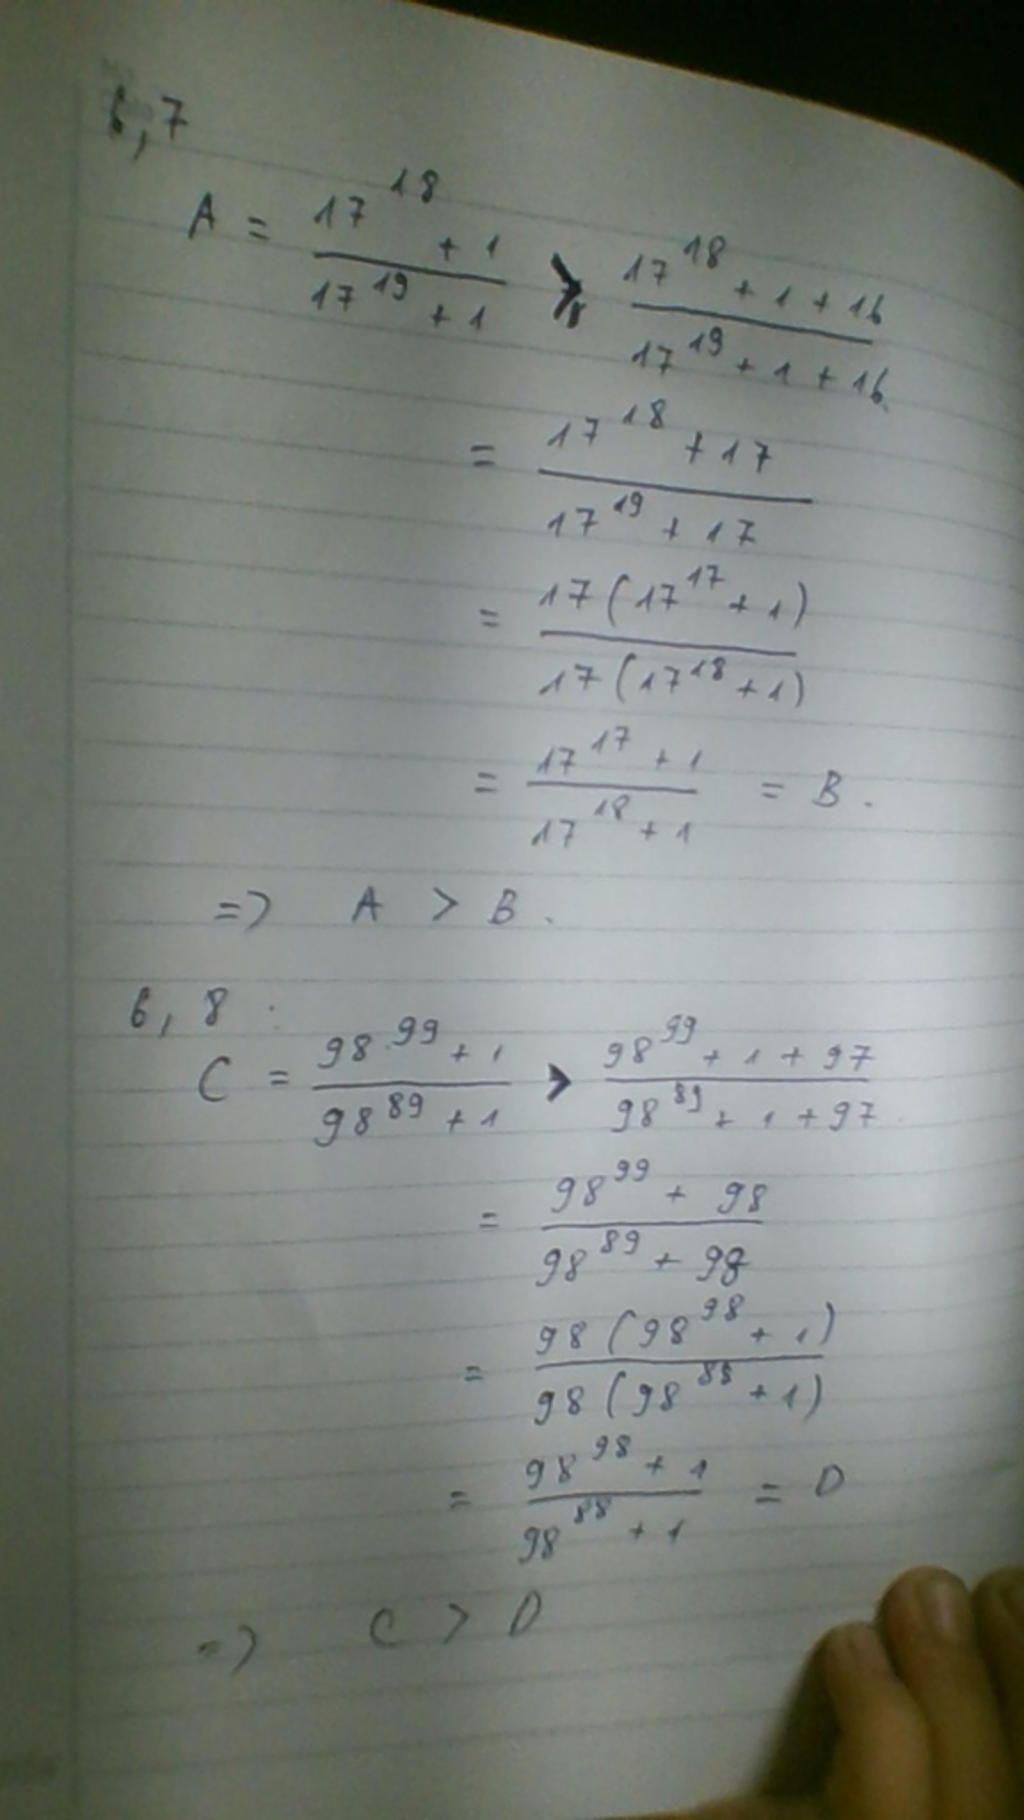 6,7
A = \frac{17^{18} + 1}{17^{19} + 1} > \frac{17^{18} + 1 + 16}{17^{19} + 1 + 16}
= \frac{17^{18} + 17}{17^{19} + 17}
= \frac{17(17^{17} + 1)}{17(17^{18} + 1)}
= \frac{17^{17} + 1}{17^{18} + 1} = B.
=> A > B.
6, 8 :
C = \frac{98^{99} + 1}{98^{89} + 1} > \frac{98^{99} + 1 + 97}{98^{89} + 1 + 97}
= \frac{98^{99} + 98}{98^{89} + 98}
= \frac{98(98^{98} + 1)}{98(98^{88} + 1)}
= \frac{98^{98} + 1}{98^{88} + 1} = D
=> C > D